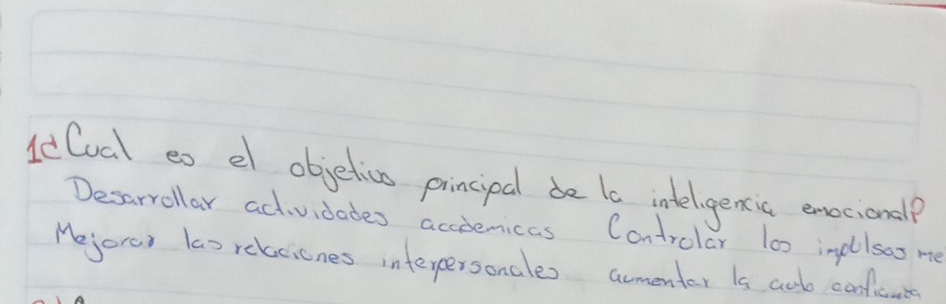 1¿Cual es el objetivo principal de la inteligencia emocional?
Desarrollar actividades academicas Controlar los impulsos me
Mejorar las relaciones interpersonales aumentar la auto confianza